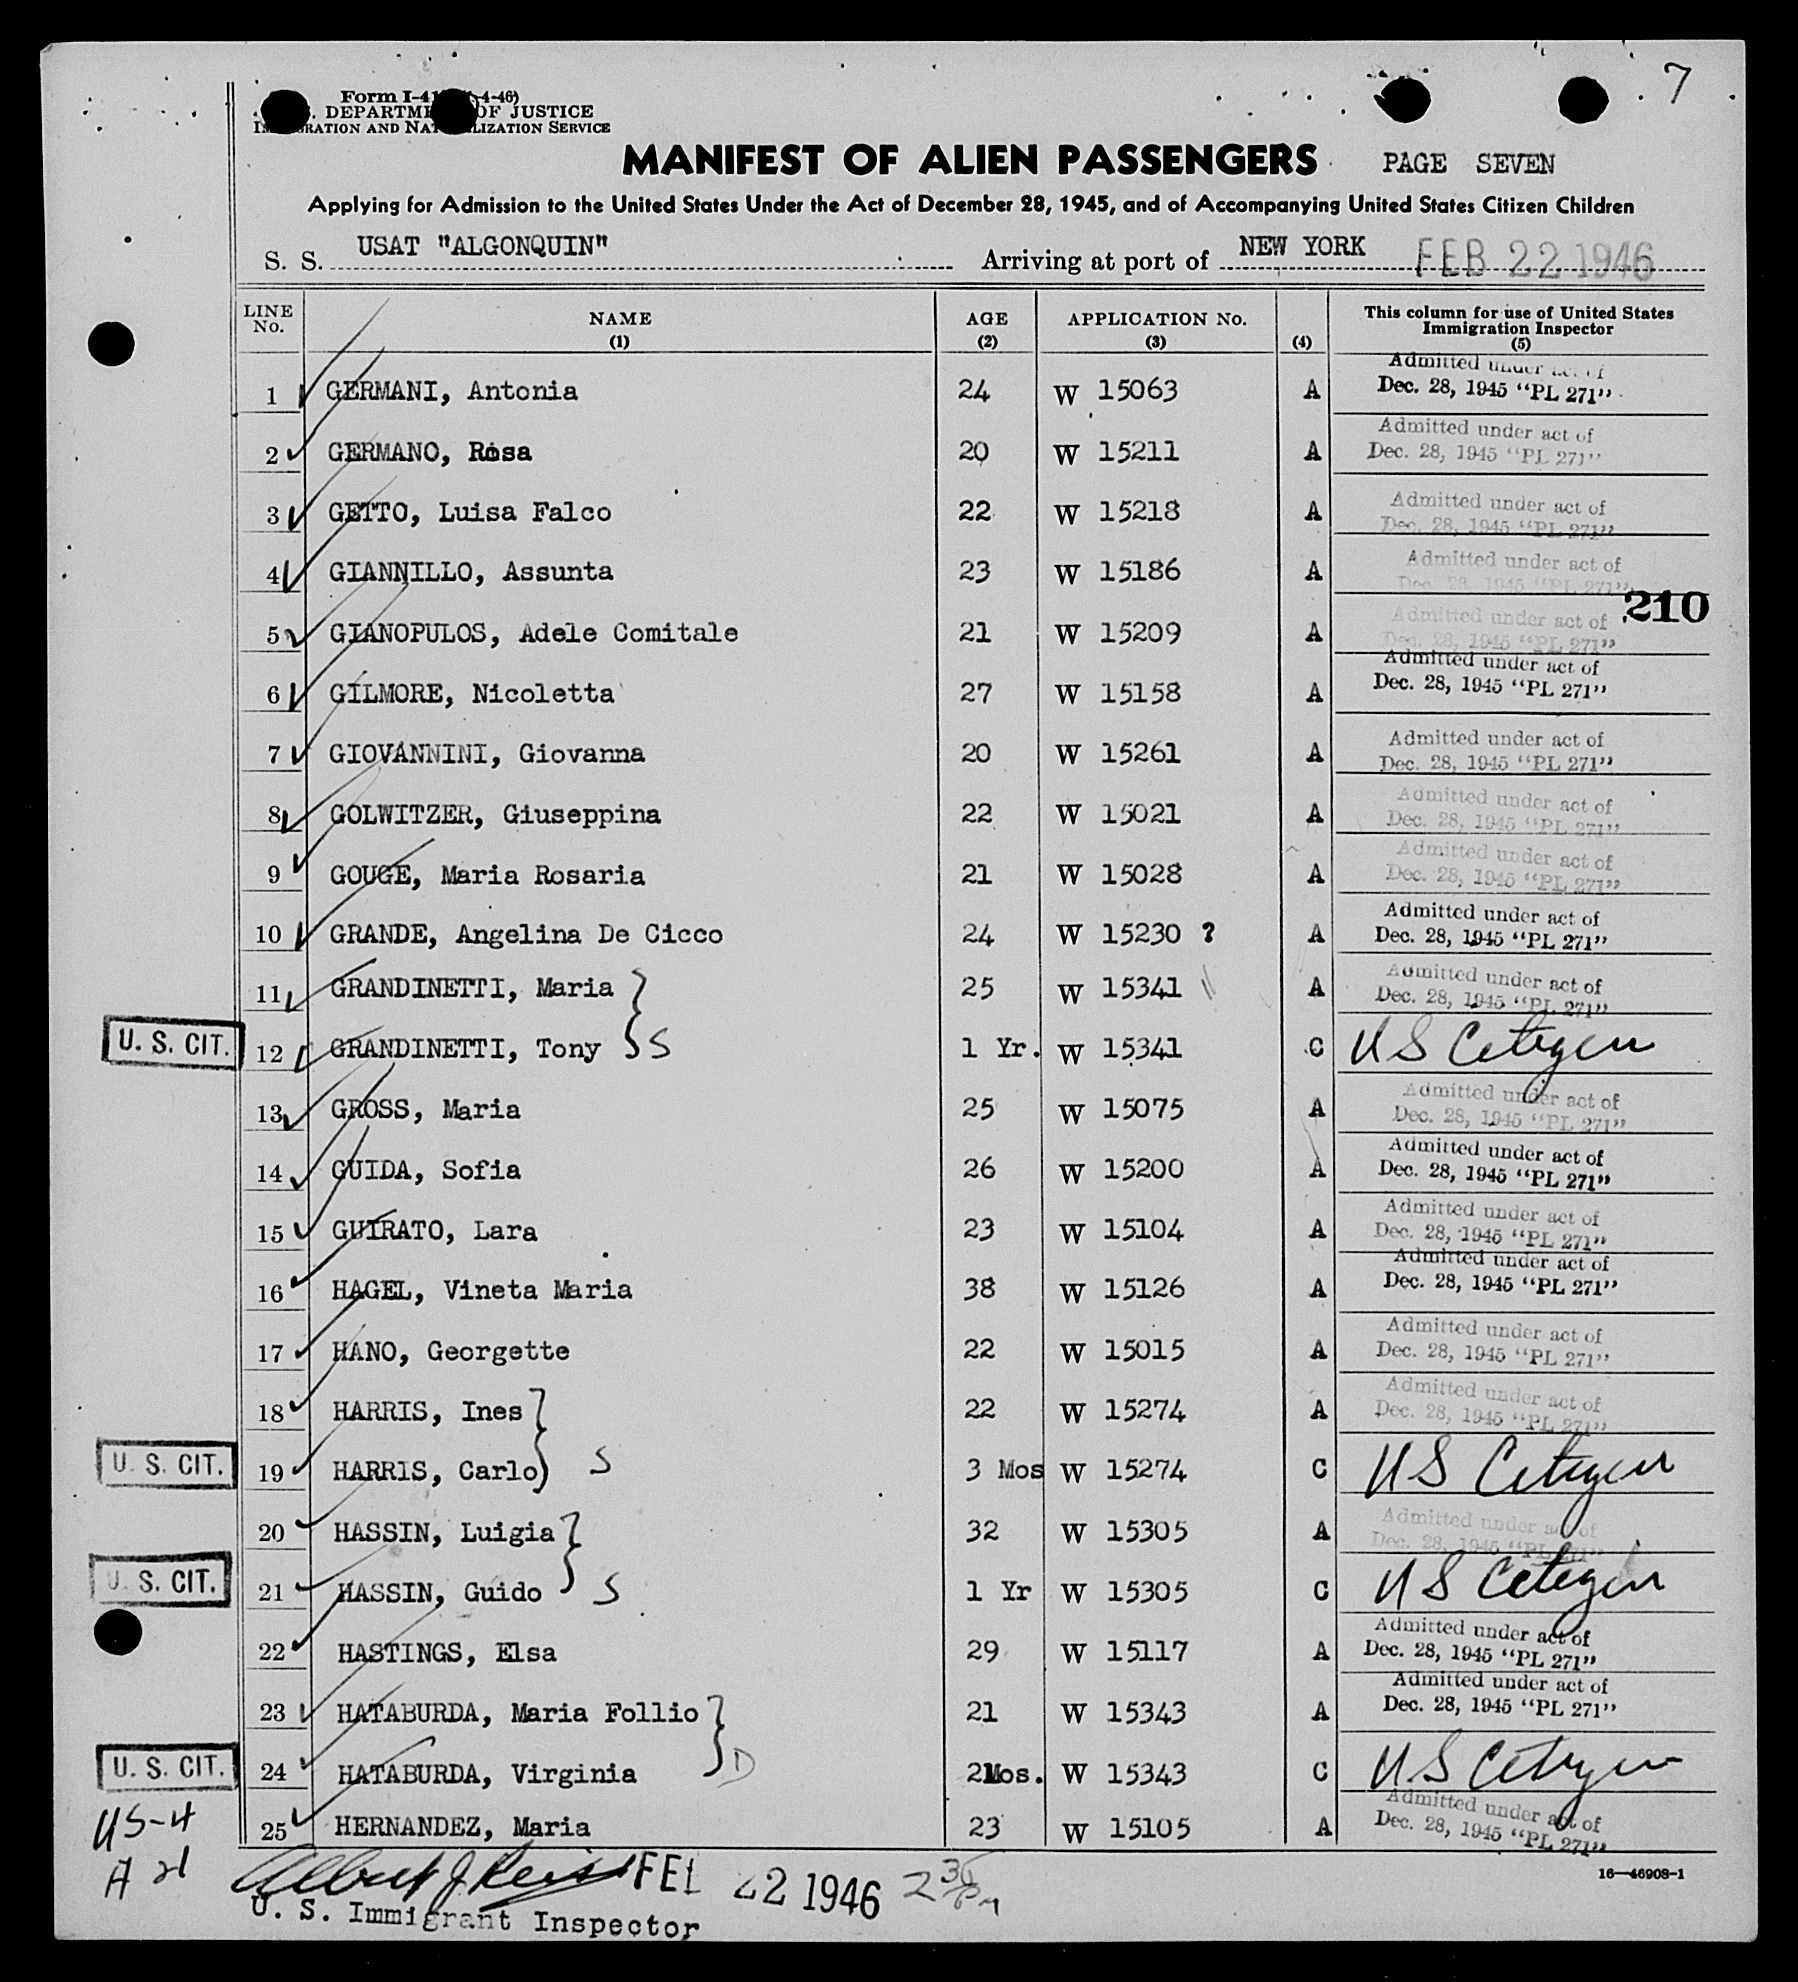 7
Form I-41 -4-46)
DEPARTME OF JUSTICE
RATION AND NAT LIZATION SERVICE
MANIFEST OF ALIEN PASSENGERS PAGE SEVEN
Applying for Admission to the United States Under the Act of December 28, 1945, and of Accompanying United States Citizen Children
S. S. USAT "ALGONQUIN" Arriving at port of NEW YORK FEB 22 1946
LINE No. NAME (1) AGE (2) APPLICATION No. (3) (4) This column for use of United States Immigration Inspector (5)
1 GERMANI, Antonia 24 W 15063 A Admitted under act of Dec. 28, 1945 "PL 271"
2 GERMANO, Rosa 20 W 15211 A Admitted under act of Dec. 28, 1945 "PL 271"
3 GETTO, Luisa Falco 22 W 15218 A Admitted under act of Dec. 28, 1945 "PL 271"
4 GIANNILLO, Assunta 23 W 15186 A Admitted under act of Dec. 28, 1945 "PL 271"
210
5 GIANOPULOS, Adele Comitale 21 W 15209 A Admitted under act of Dec. 28, 1945 "PL 271"
6 GILMORE, Nicoletta 27 W 15158 A Admitted under act of Dec. 28, 1945 "PL 271"
7 GIOVANNINI, Giovanna 20 W 15261 A Admitted under act of Dec. 28, 1945 "PL 271"
8 GOLWITZER, Giuseppina 22 W 15021 A Admitted under act of Dec. 28, 1945 "PL 271"
9 GOUGE, Maria Rosaria 21 W 15028 A Admitted under act of Dec. 28, 1945 "PL 271"
10 GRANDE, Angelina De Cicco 24 W 15230 ? A Admitted under act of Dec. 28, 1945 "PL 271"
11 GRANDINETTI, Maria 25 W 15341 A Admitted under act of Dec. 28, 1945 "PL 271"
U. S. CIT. 12 GRANDINETTI, Tony S 1 Yr. W 15341 C U S Citizen
13 GROSS, Maria 25 W 15075 A Admitted under act of Dec. 28, 1945 "PL 271"
14 GUIDA, Sofia 26 W 15200 A Admitted under act of Dec. 28, 1945 "PL 271"
15 GUIRATO, Lara 23 W 15104 A Admitted under act of Dec. 28, 1945 "PL 271"
16 HAGEL, Vineta Maria 38 W 15126 A Admitted under act of Dec. 28, 1945 "PL 271"
17 HANO, Georgette 22 W 15015 A Admitted under act of Dec. 28, 1945 "PL 271"
18 HARRIS, Ines 22 W 15274 A Admitted under act of Dec. 28, 1945 "PL 271"
U. S. CIT. 19 HARRIS, Carlo S 3 Mos W 15274 C U S Citizen
20 HASSIN, Luigia 32 W 15305 A Admitted under act of Dec. 28, 1945 "PL 271"
U. S. CIT. 21 HASSIN, Guido S 1 Yr W 15305 C U S Citizen
22 HASTINGS, Elsa 29 W 15117 A Admitted under act of Dec. 28, 1945 "PL 271"
23 HATABURDA, Maria Follio 21 W 15343 A Admitted under act of Dec. 28, 1945 "PL 271"
U. S. CIT. 24 HATABURDA, Virginia D 2Mos. W 15343 C U S Citizen
25 HERNANDEZ, Maria 23 W 15105 A Admitted under act of Dec. 28, 1945 "PL 271"
US-4
A 21
16—46908-1
Albert J. FEB 22 1946 2 30 PM
U. S. Immigrant Inspector